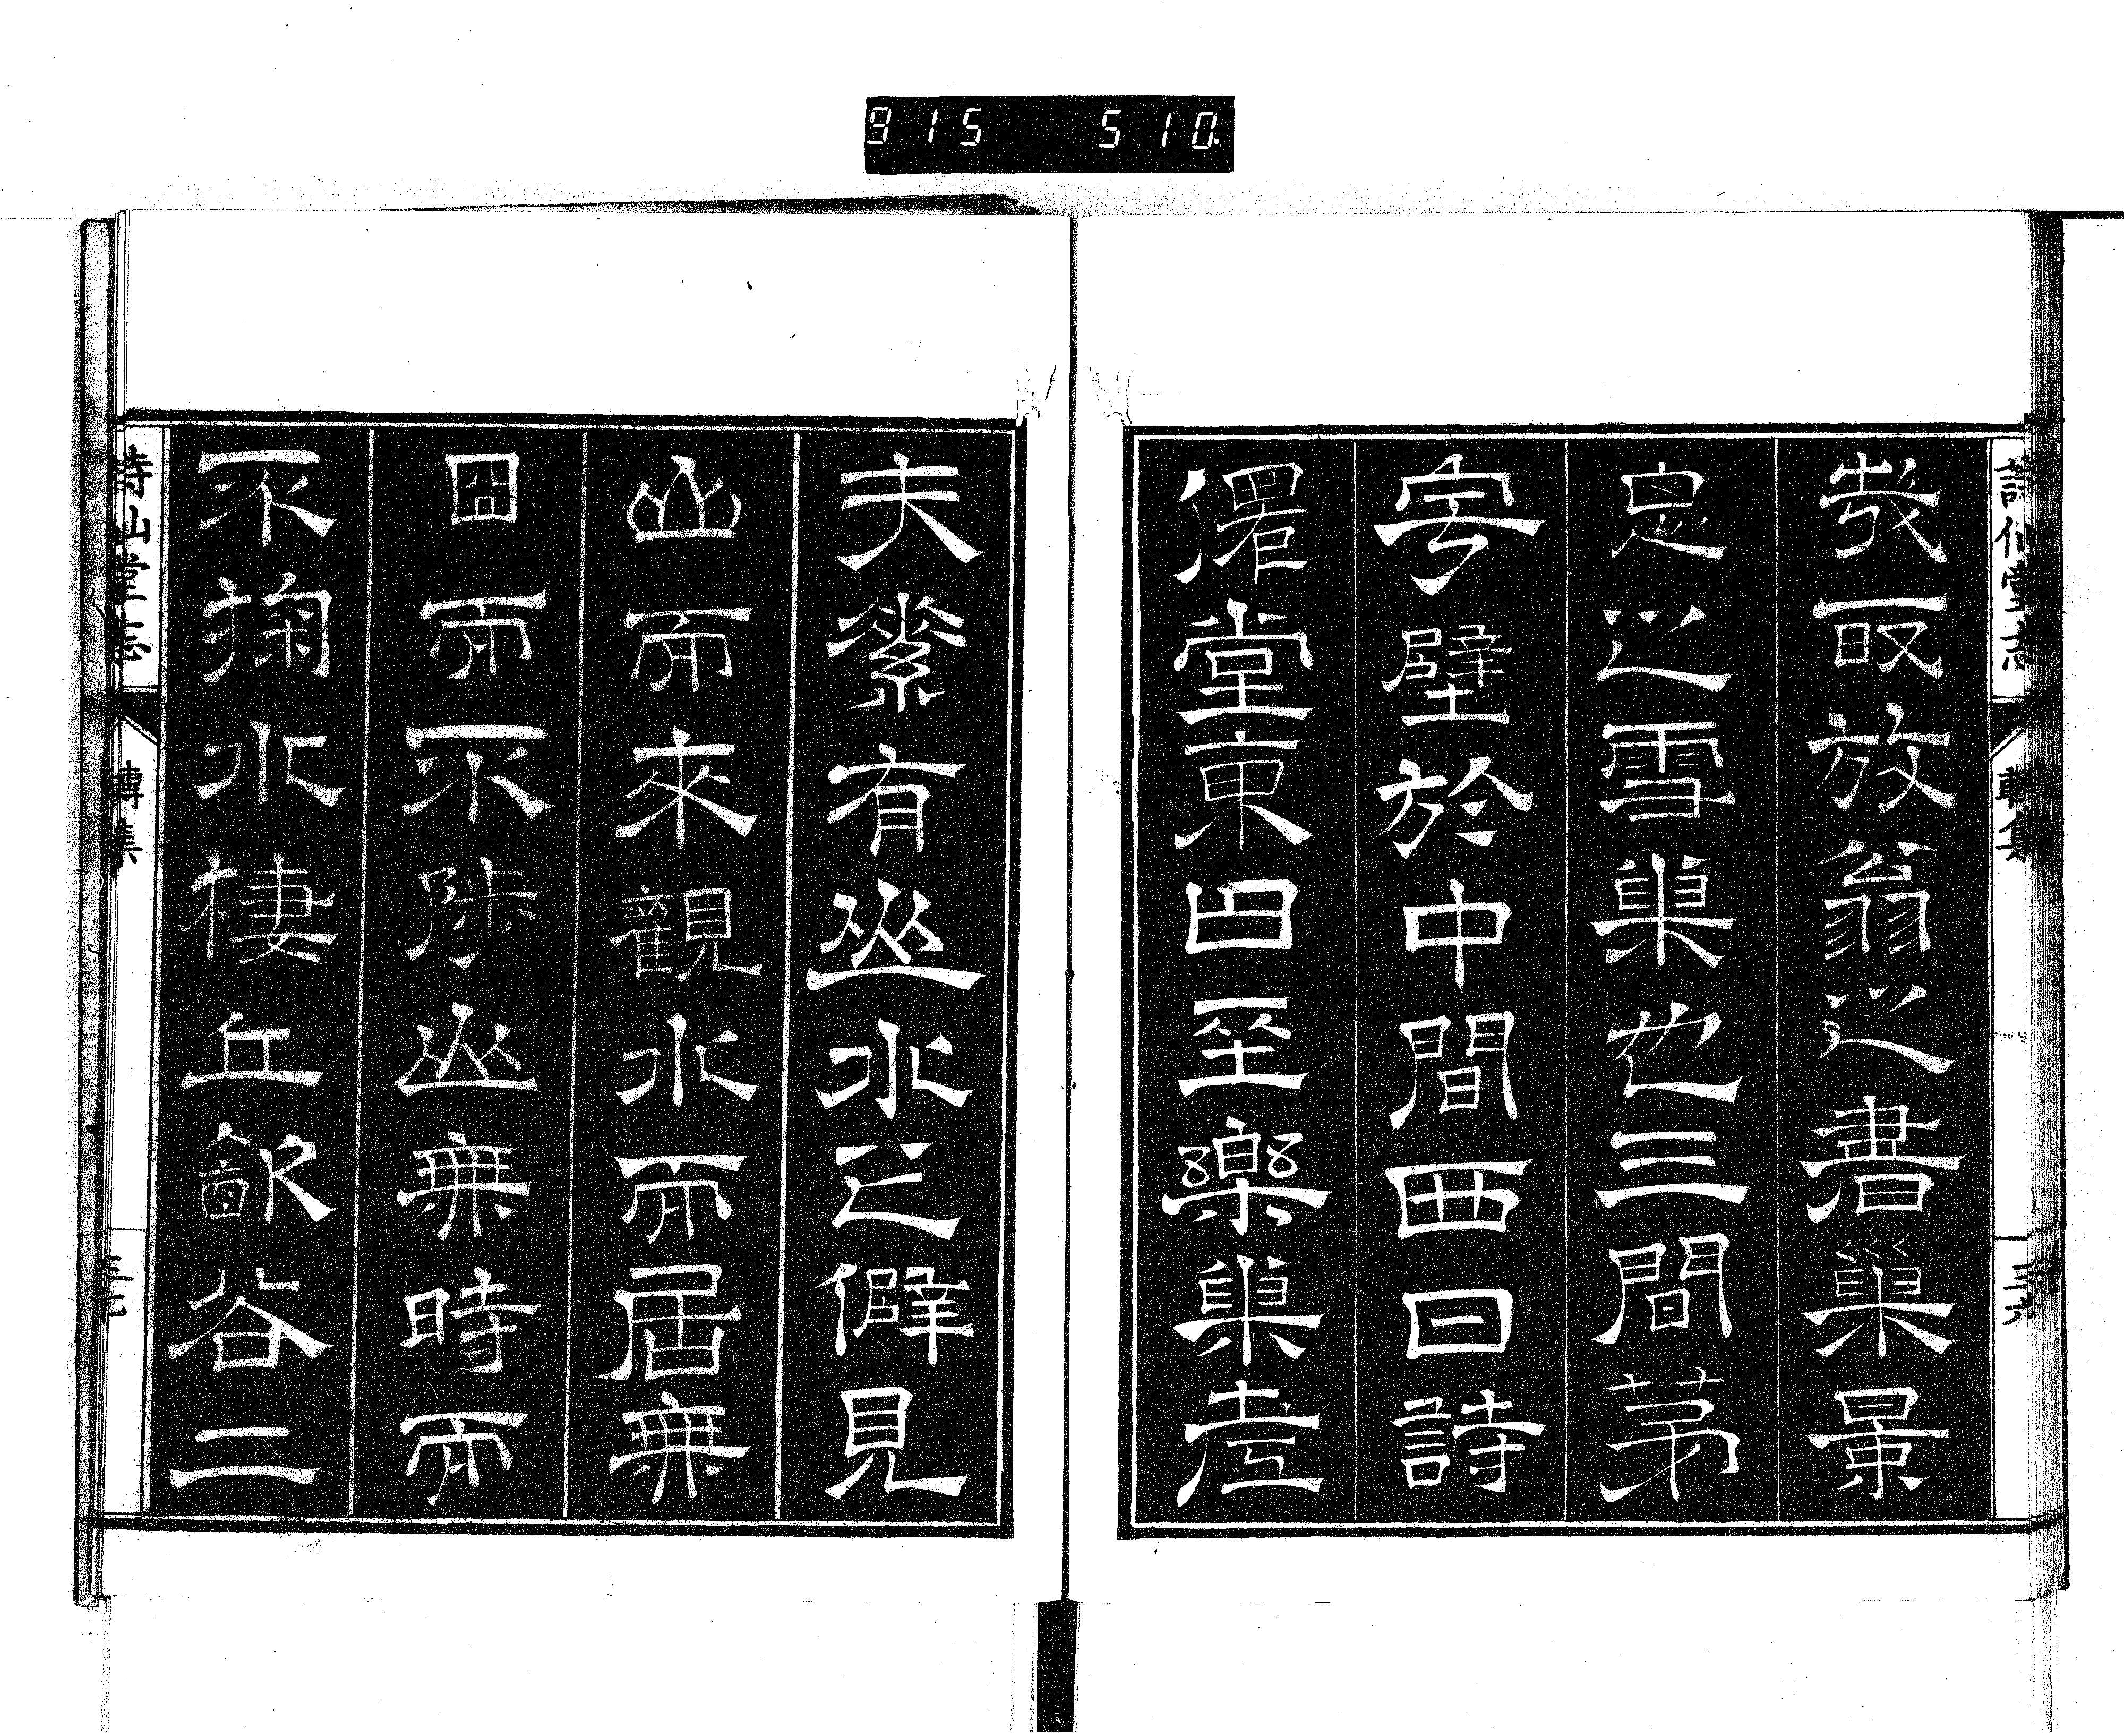 915 510.
詩仙堂志 轉集 三六
哉取放翁之書巢景
思之雪巢也三間茅
宇壁於中間西曰詩
僊堂東曰至樂巢老
夫素有山水之僻見
山而來觀水而居無
日而不陟山無時而
不掬水棲丘飲谷二
詩仙堂志 轉集 三七